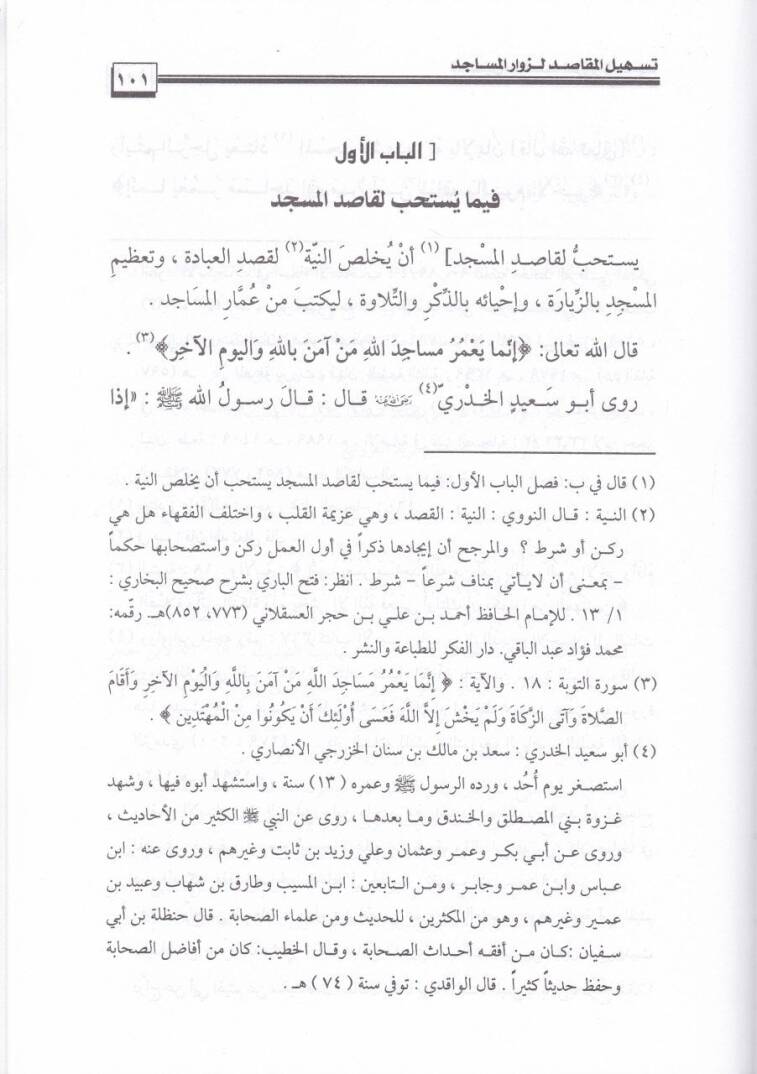 تسهيل المقاصد لزوار المساجد
١٠١
[ الباب الأول
فيما يُستحب لقاصد المسجد
يستحبُّ لقاصد المسْجد] (١) أنْ يُخلصَ النيّة(٢) لقصد العبادة ، وتعظيمِ
المسْجدِ بالزِّيارَة ، وإحْيائه بالذِّكْرِ والتِّلاوة ، ليكتبَ منْ عُمَّارِ المسَاجد .
قال الله تعالى: ﴿إنّما يَعْمُرُ مساجدَ اللهِ مَنْ آمَنَ باللهِ وَاليومِ الآخرِ﴾(٣) .
روى أبو سَعيدٍ الخدْريّ(٤) رضي الله عنه قال : قالَ رسولُ الله ﷺ : «إذا
(١) قال في ب: فصل الباب الأول: فيما يستحب لقاصد المسجد يستحب أن يخلص النية .
(٢) النية : قال النووي : النية : القصد ، وهي عزيمة القلب ، واختلف الفقهاء هل هي
ركن أو شرط ؟ والمرجح أن إيجادها ذكراً في أول العمل ركن واستصحابها حكماً
– بمعنى أن لا يأتي بمناف شرعاً – شرط . انظر: فتح الباري بشرح صحيح البخاري :
١/ ١٣ . للإمام الحافظ أحمد بن علي بن حجر العسقلاني (٧٧٣، ٨٥٢)هـ. رقّمه:
محمد فؤاد عبد الباقي. دار الفكر للطباعة والنشر .
(٣) سورة التوبة : ١٨ . والآية : ﴿ إِنَّمَا يَعْمُرُ مَسَاجِدَ اللَّهِ مَنْ آمَنَ بِاللَّهِ وَالْيَوْمِ الآخِرِ وَأَقَامَ
الصَّلاةَ وَآتَى الزَّكَاةَ وَلَمْ يَخْشَ إِلاَّ اللَّهَ فَعَسَى أُوْلَئِكَ أَنْ يَكُونُوا مِنْ الْمُهْتَدِين ﴾ .
(٤) أبو سعيد الخدري : سعد بن مالك بن سنان الخزرجي الأنصاري .
استصغر يوم أُحُد ، ورده الرسول ﷺ وعمره (١٣) سنة ، واستشهد أبوه فيها ، وشهد
غزوة بني المصطلق والخندق وما بعدها ، روى عن النبي ﷺ الكثير من الأحاديث ،
وروى عن أبي بكر وعمر وعثمان وعلي وزيد بن ثابت وغيرهم ، وروى عنه : ابن
عباس وابن عمر وجابر ، ومن التابعين : ابن المسيب وطارق بن شهاب وعبيد بن
عمير وغيرهم ، وهو من المكثرين ، للحديث ومن علماء الصحابة . قال حنظلة بن أبي
سفيان :كان من أفقه أحداث الصحابة ، وقال الخطيب: كان من أفاضل الصحابة
وحفظ حديثاً كثيراً . قال الواقدي : توفي سنة ( ٧٤ ) هـ .